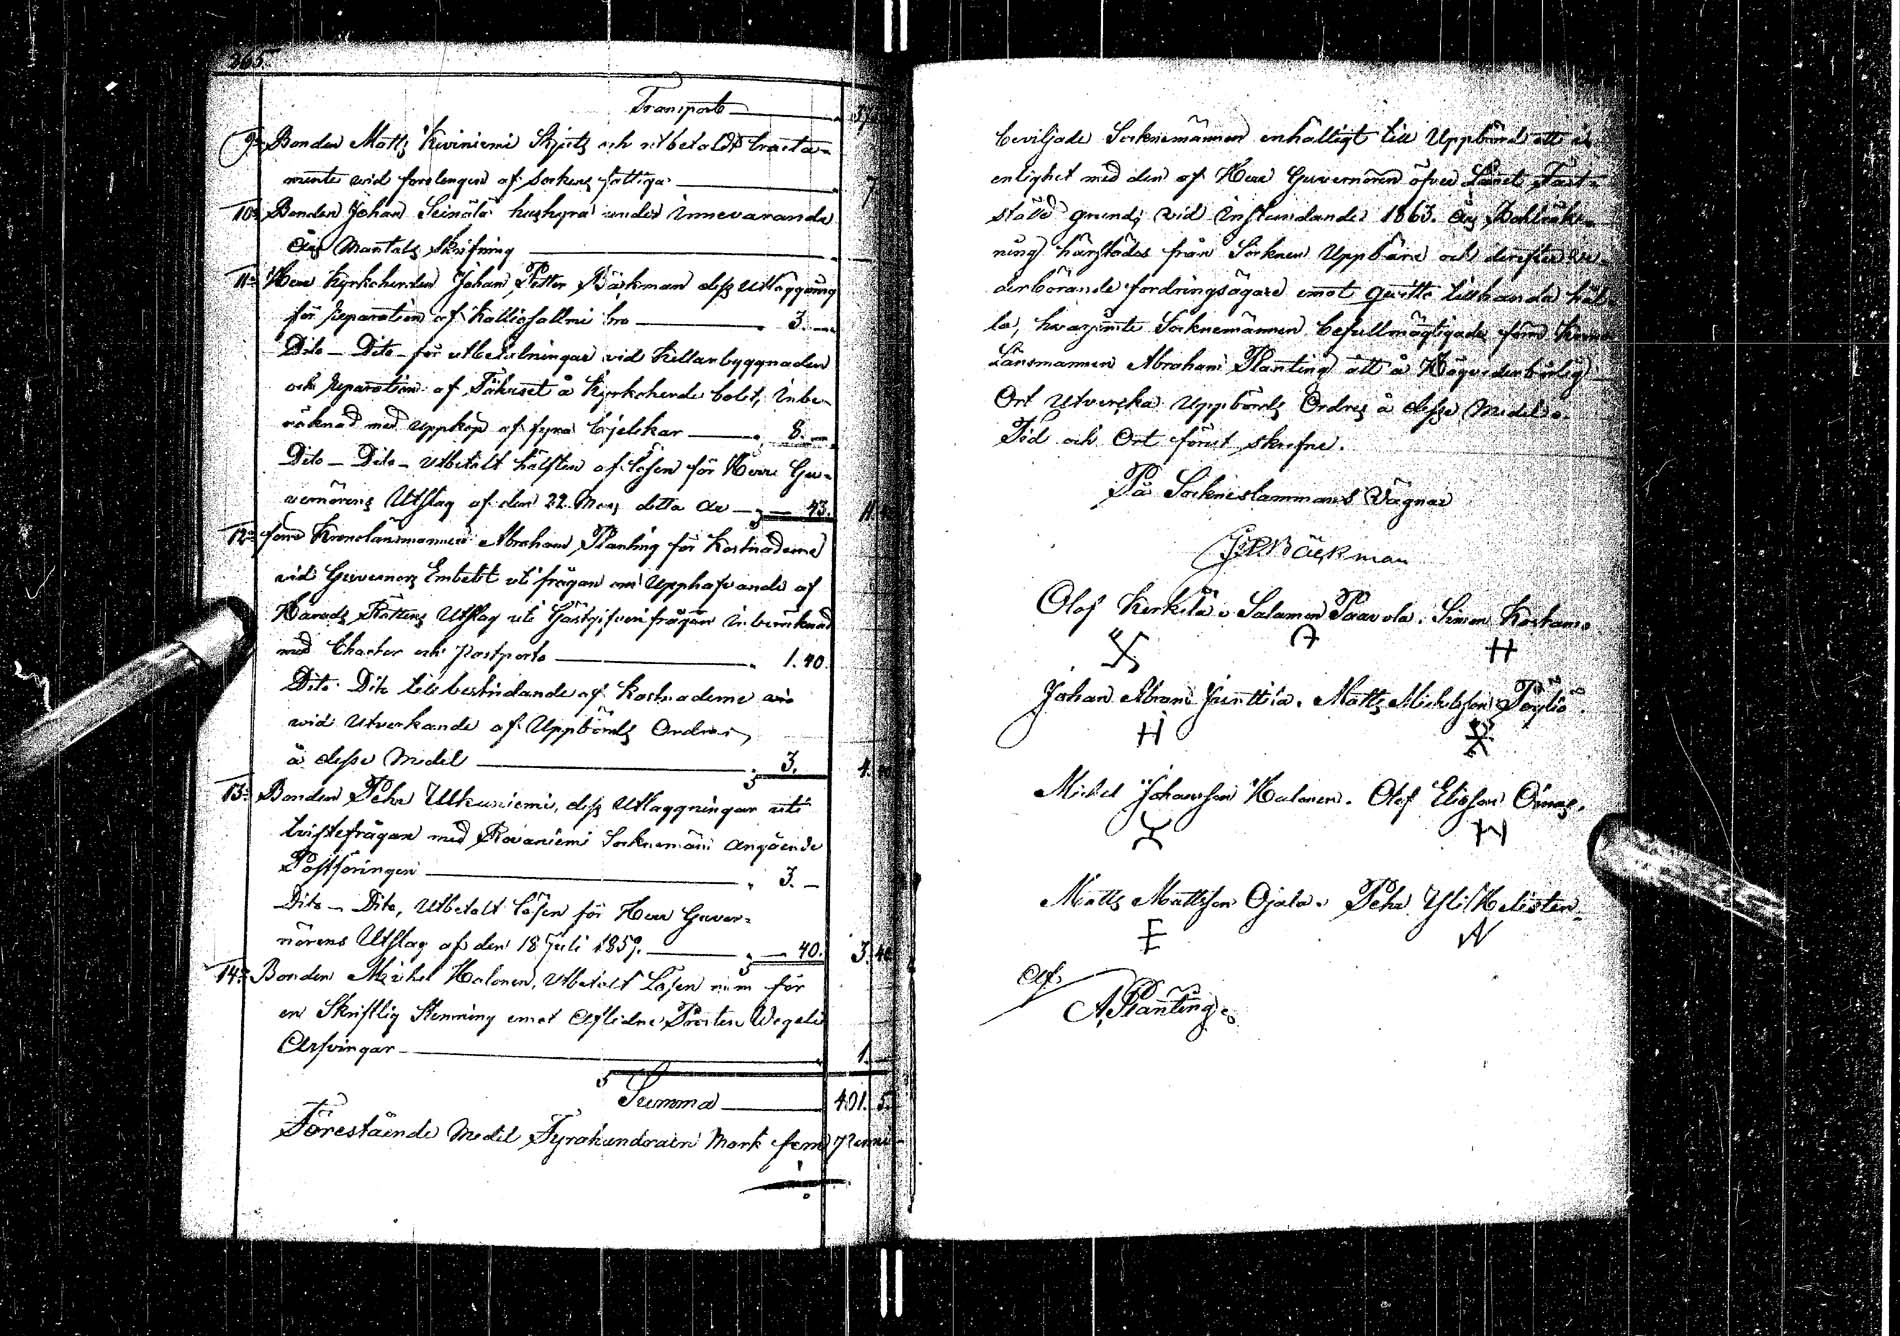 365.
Transport
9. Bonden Matts Kiviniemi Skjuts och utbetaldt tracta-
mente vid forslengen af Sockens fattiga 7
10. Bonden Johan Seinälä hushyra under innevarande
års Mantals skrifning
11. Herr Kyrkoherden Johan Petter Bäckman dess Utläggning
för Reparation af Kalliosalmi bro 3. —
Dito — Dito — för utbetalningar vid Källarbyggnaden
och Reparation af Fähuset å Kyrkoherde bolet, inbe-
räknad med uppköp af fyra bjelckar 8. —
Dito — Dito — Utbetalt hälften af lösen för Herr Gu-
vernörens Utslag af den 22 Mars detta år — 43. 11.
12. förre Kronolänsmannen Abraham Planting för Kostnaderne
vid Guvernors Embetet uti frågan om Upphäfvande af
Härads Rättens Utslag uti Gästgifveri frågan inberäknad
med Charter och Postporto 1. 40.
Dito Dito till bestridande af Kostnaderne
vid Utverkande af Uppbörds Ordres
å desse Medel 3. 4.
13. Bonden Pehr Ulkuniemi, dess Utläggningar uti
tvistefrågan med Rovaniemi Socknemän angående
Postföringen 3. —
Dito — Dito, Utbetalt lösen för Herr Guver-
nörens Utslag af den 18 Juli 1859. — 40. 3. 40
14. Bonden Michel Halonen, Utbetalt Lösen för
en Skriftlig Stemning emot Aflidne Prosten Wegelii
Arfvingar 1. —
Summa 401. 5.
Förestående Medel Fyrahundraen Mark fem
beviljade Socknemännen enhälligt till Uppbörd att i
enlighet med den af Herr Guvernören öfver Länet Fast-
stälde grund, vid instundande 1863. års Bohlräk-
ning härstädes från Socknen Uppbäras och derefter ve-
derbörande fordringsägare emot qvitto tillhanda hål-
la, hvarjemte Socknemännen befullmägtigade förre Krono
Länsmannen Abraham Planting att å Högvederbörlig
Ort utverka Uppbörds Ordres å desse Medel.
Tid och Ort förut skrefne.
På Sockneslämmans Vägnar
J. P. Bäckman
Olof Kerkelä. Salamon Paavola. Simon Kostamo.
Johan Abram Junttila. Matts Michelsson Pöyliö.
Michel Johansson Halonen. Olof Eliasson Oinas.
Matts Mattsson Ojala. Pehr Yli Helisten.
Af.
A. Planting.